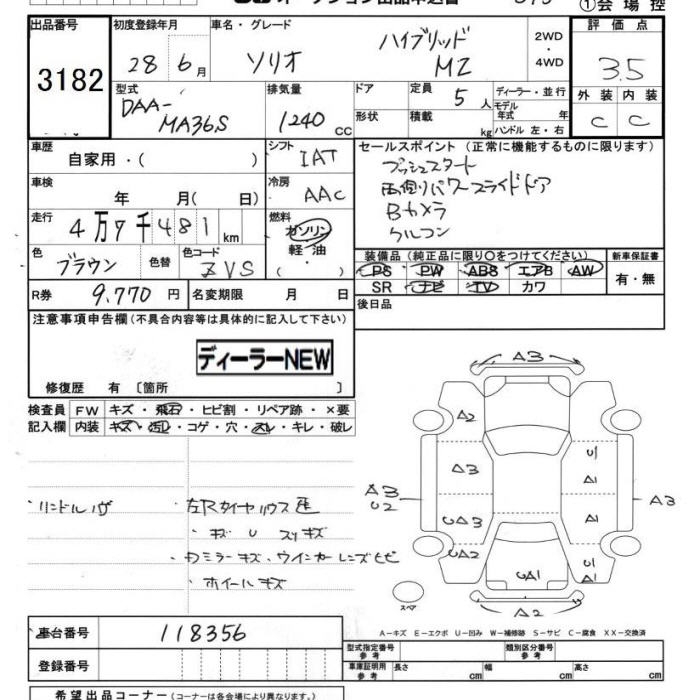 ①会場控
出品番号 初度登録年月 車名・グレード 2WD・4WD 評価点
3182 28年6月 ソリオ ハイブリッド MZ 3.5
型式 排気量 ドア 定員 ディーラー・並行 外装 内装
DAA-MA36S 1240cc 5人 モデル年式 年 C C
形状 積載 kg ハンドル 左・右
車歴 シフト セールスポイント (正常に機能するものに限ります)
自家用・( ) IAT プッシュスタート
車検 冷房 両側パワースライドドア
年 月(日) AAC Bカメラ
走行 燃料 クルコン
4万7千481km ガソリン 軽・油 ( )
色 色替 色コード 装備品 (純正品に限り○をつけてください) 新車保証書
ブラウン ZVS PS PW ABS エアB AW 有・無
SR ナビ TV カワ
R券 9,770円 名変期限 月 日 後日品
注意事項申告欄(不具合内容等は具体的に記入して下さい)
ディーラーNEW
修復歴 有〔箇所 〕
検査員 FW キズ・飛石・ヒビ割・リペア跡・×要
記入欄 内装 キズ・汚れ・コゲ・穴・スレ・キレ・破レ
A3
A2 U1
A3 A1
A3 U2 UA3 A1 A3
UA2 U1 A1
UA1
A2
スペア
・ハンドル ・左R
キズ U スリキズ
・ミラーキズ、ウインカーレンズヒビ
・ホイールキズ
A-キズ E-エクボ U-凹み W-補修跡 S-サビ C-腐食 XX-交換済
車台番号 118356
型式指定番号 参考 類別区分番号 参考
登録番号 車庫証明用 参考 長さ cm 幅 cm 高さ cm
希望出品コーナー (コーナーは各会場により異なります。)